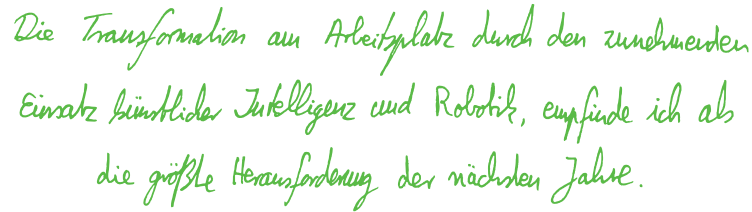 Die Transformation am Arbeitsplatz durch den zunehmenden
Einsatz künstlicher Intelligenz und Robotik, empfinde ich als
die größte Herausforderung der nächsten Jahre.